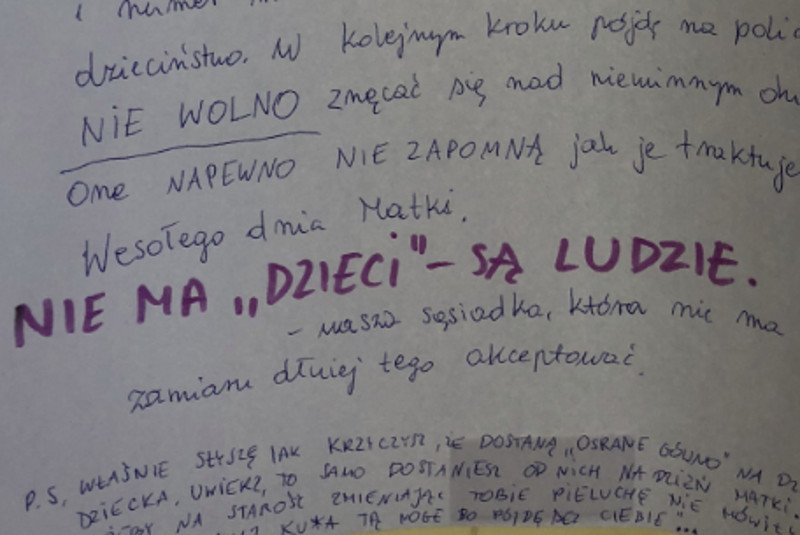 i numer
dzieciństwo. W kolejnym kroku pójdę na polic
NIE WOLNO znęcać się nad niewinnym
One NAPEWNO NIE ZAPOMNĄ jak je traktuje
Wesołego dnia Matki.
NIE MA „DZIECI" – SĄ LUDZIE.
– wasza sąsiadka, która nie ma
zamiaru dłużej tego akceptować.
P.S. WŁAŚNIE SŁYSZĘ JAK KRZYCZYSZ, ŻE DOSTANĄ „OSRANE GÓWNO" NA
DZIECKA. UWIERZ, TO SAMO DOSTANIESZ OD NICH NA DZIEŃ MATKI.
NA STAROŚĆ ZMIENIAJĄC TOBIE PIELUCHĘ NIE
KU*A TĄ NOGĘ BO PÓJDĘ BEZ CIEBIE"...